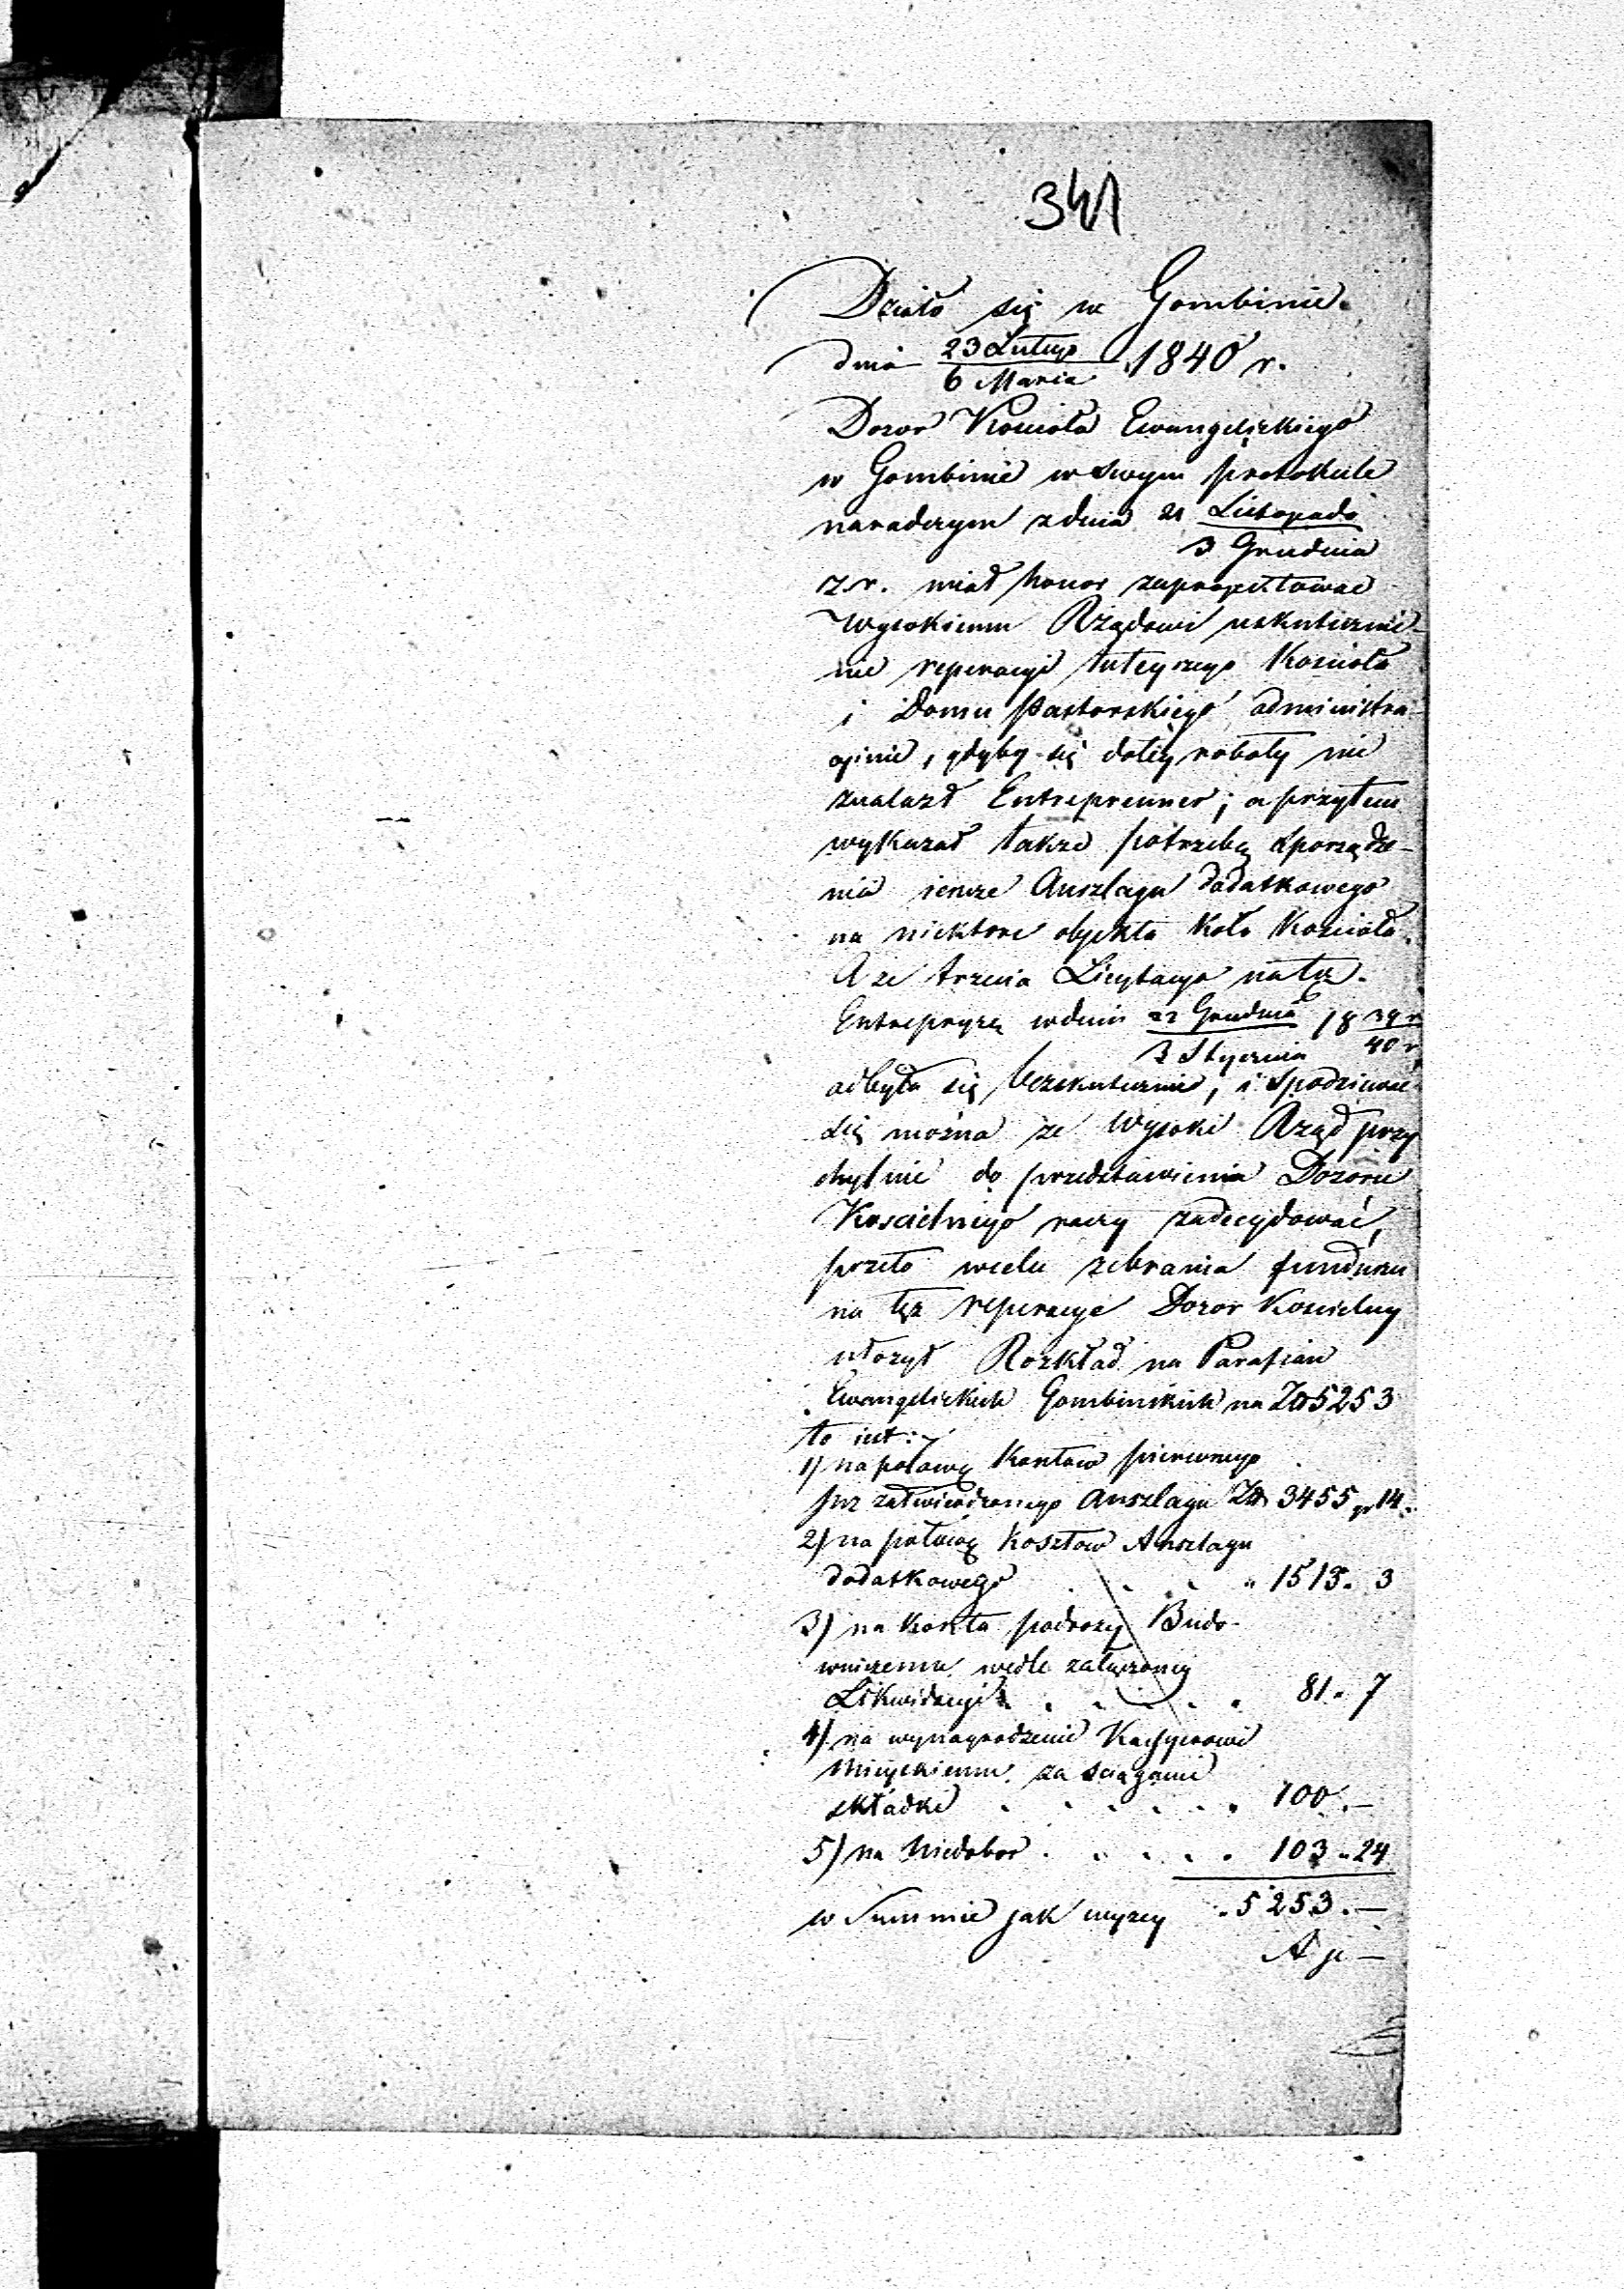 341
Działo się w Gombinie
dnia 23 Lutego / 6 Marca 1840 r.
Dozor Kościoła Ewangelickiego
w Gombinie w swym protokule
naradczym z dnia 21 Listopada / 3 Grudnia
z. r. miał honor zaprojektować
Wysokiemu Rządowi uskutecznie-
nie reperacyi tuteyszego Kościoła
i Domu Pastorskiego administra-
cyinie, gdyby się do tey roboty nie
znalazł Entreprenner; a przytem
wykazał także potrzebę sporządze-
nia ieszcze Anszlagu dodatkowego
na niektore objekta koło Kościoła.
A ze trzecia Licytacya na tę
Entrepryzę w dniu 22 Grudnia / 3 Stycznia 18 39 r / 40 r
odbyła się bezskutecznie, i spodziewać
się można ze Wysoki Rząd przy
chylnie do przedstawienia Dozoru
Kościelnego raczy zadecydować,
przeto wcelu zebrania funduszu
na tęz reperacye Dozor Kościelny
ułozył Rozkład na Parafian
Ewangelickich Gombinskich na Złt 5253
to iest:
1) na połowę Kosztow pierwszego
juz zatwierdzonego Anszlagu Złt 3455 gr 14
2) na połowę Kosztow Anszlagu
dodatkowego . . . . " 1513 . 3
3) na koszta podrozy Budo-
wniczemu wedle załączoney
Likwidacyi . . . . . 81 . 7
4) na wynagrodzenie Kassyerowi
Mieyskiemu za sciąganie
składki . . . . . . 100 . —
5) na Niedobor . . . . . 103 . 24
w Summie jak wyzey . 5253 . —
A gr —